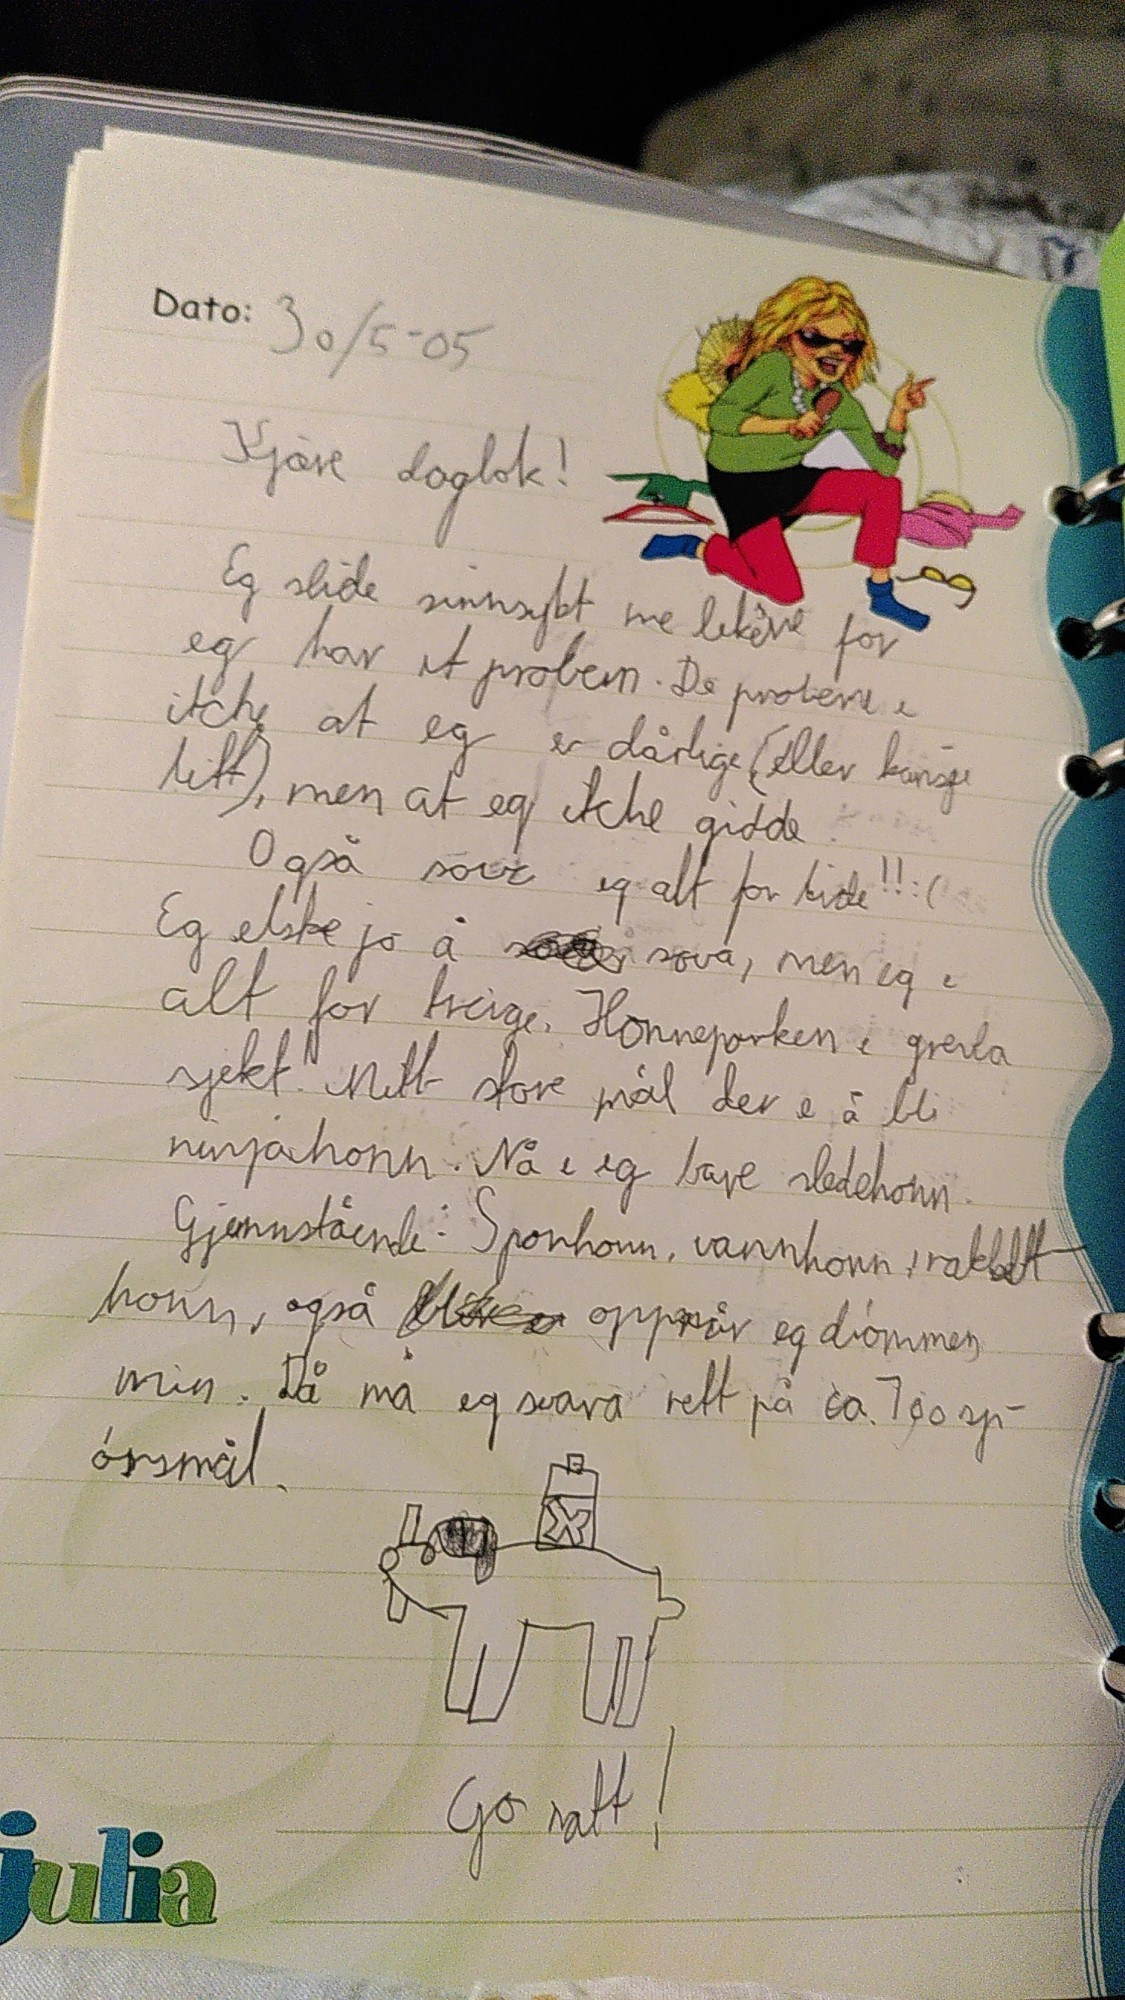 Dato: 30/5-05
Kjære dagbok!
Eg slide sinnsykt me leksene for
eg har et problem. De probleme e
itche at eg er dårlige (eller kansje
litt), men at eg itche gidde.
Også sove eg alt for lide!!:(
Eg elske jo å sova, men eg e
alt for treige. Honneparken e grevla
sjekt! Mitt store mål der e å bli
ninjahonn. Nå e eg bare sledehonn.
Gjennstående: Sporhonn, vannhonn, rakett
honn, også oppnår eg drømmen
min. Då må eg svara rett på ca. 700 sp-
ørsmål.
X
Go natt!
julia